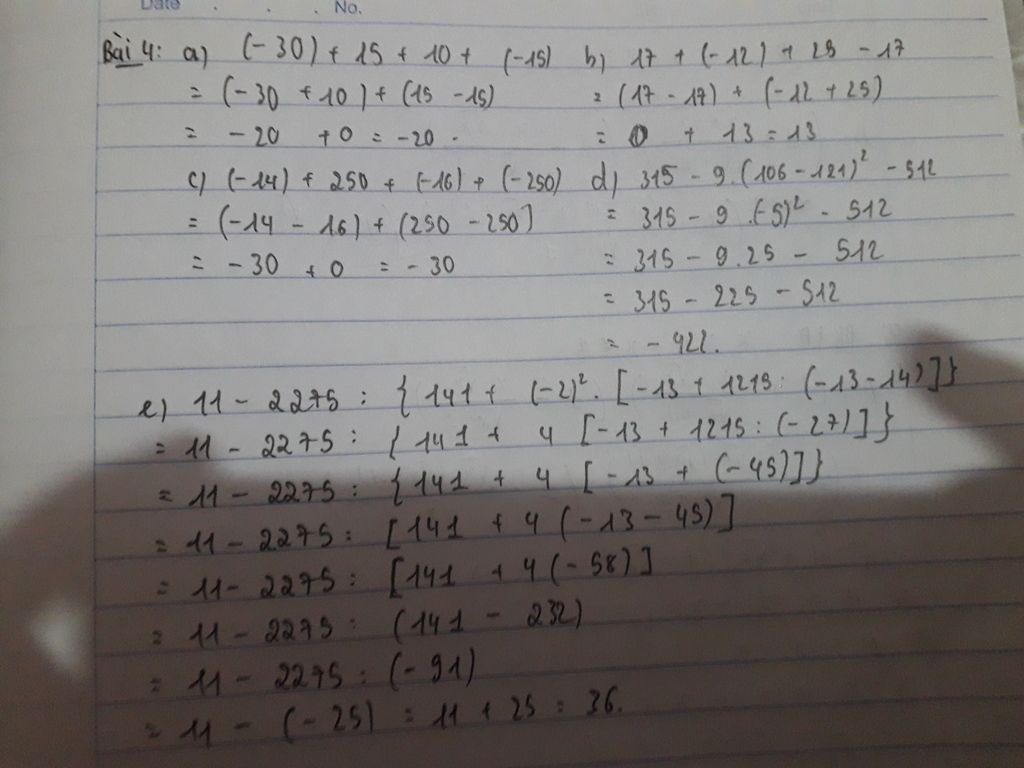 Date . . . No.
Bài 4: a) (-30) + 15 + 10 + (-15)
= (-30 + 10) + (15 - 15)
= -20 + 0 = -20.
b) 17 + (-12) + 25 - 17
= (17 - 17) + (-12 + 25)
= 0 + 13 = 13
c) (-14) + 250 + (-16) + (-250)
= (-14 - 16) + (250 - 250]
= -30 + 0 = -30
d) 315 - 9.(106 - 121)² - 512
= 315 - 9.(-5)² - 512
= 315 - 9.25 - 512
= 315 - 225 - 512
= -422.
e) 11 - 2275 : {141 + (-2)². [-13 + 1215 : (-13-14)]}
= 11 - 2275 : {141 + 4 [-13 + 1215 : (-27)]}
= 11 - 2275 : {141 + 4 [-13 + (-45)]}
= 11 - 2275 : [141 + 4 (-13 - 45)]
= 11 - 2275 : [141 + 4 (-58)]
= 11 - 2275 : (141 - 232)
= 11 - 2275 : (-91)
= 11 - (-25) = 11 + 25 = 36.